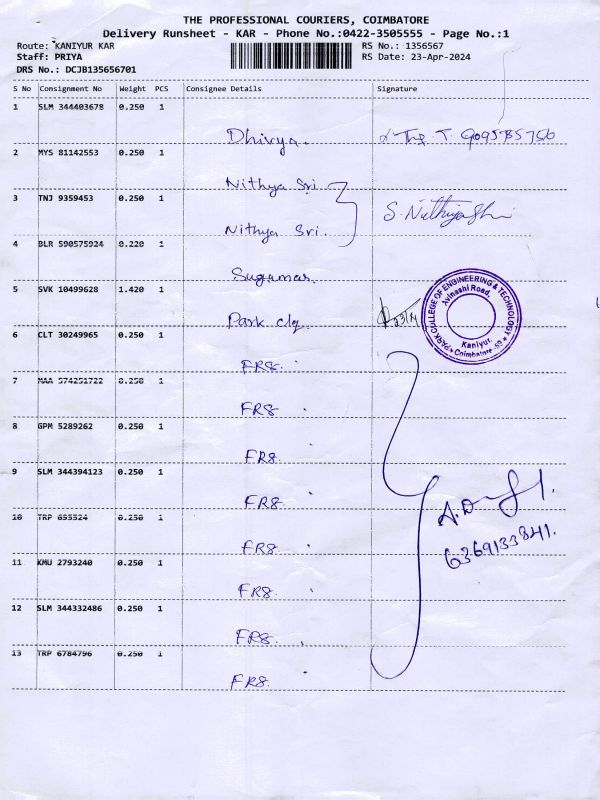 THE PROFESSIONAL COURIERS, COIMBATORE
Delivery Runsheet - KAR - Phone No.:0422-3505555 - Page No.:1
Route: KANIYUR KAR RS No.: 1356567
Staff: PRIYA RS Date: 23-Apr-2024
DRS No.: DCJB135656701
S No Consignment No Weight PCS Consignee Details Signature
1 SLM 344403678 0.250 1
Dhivya.
2 MYS 81142553 0.250 1
Nithya Sri.
3 TNJ 9359453 0.250 1
Nithya Sri. S. Nithyashri
4 BLR 590575924 0.220 1
Sugumar.
5 SVK 10499628 1.420 1
Park clg
PARK COLLEGE OF ENGINEERING & TECHNOLOGY
Avinashi Road,
Kaniyur
Coimbatore-59
6 CLT 30249965 0.250 1
FR8.
7 MAA 574251722 0.250 1
FR8.
8 GPM 5289262 0.250 1
FR8.
9 SLM 344394123 0.250 1
FR8.
10 TRP 1
FR8.
6369133841.
11 KMU 2793240 0.250 1
FR8.
12 SLM 344332486 0.250 1
FR8.
13 TRP 6784796 0.250 1
FR8.